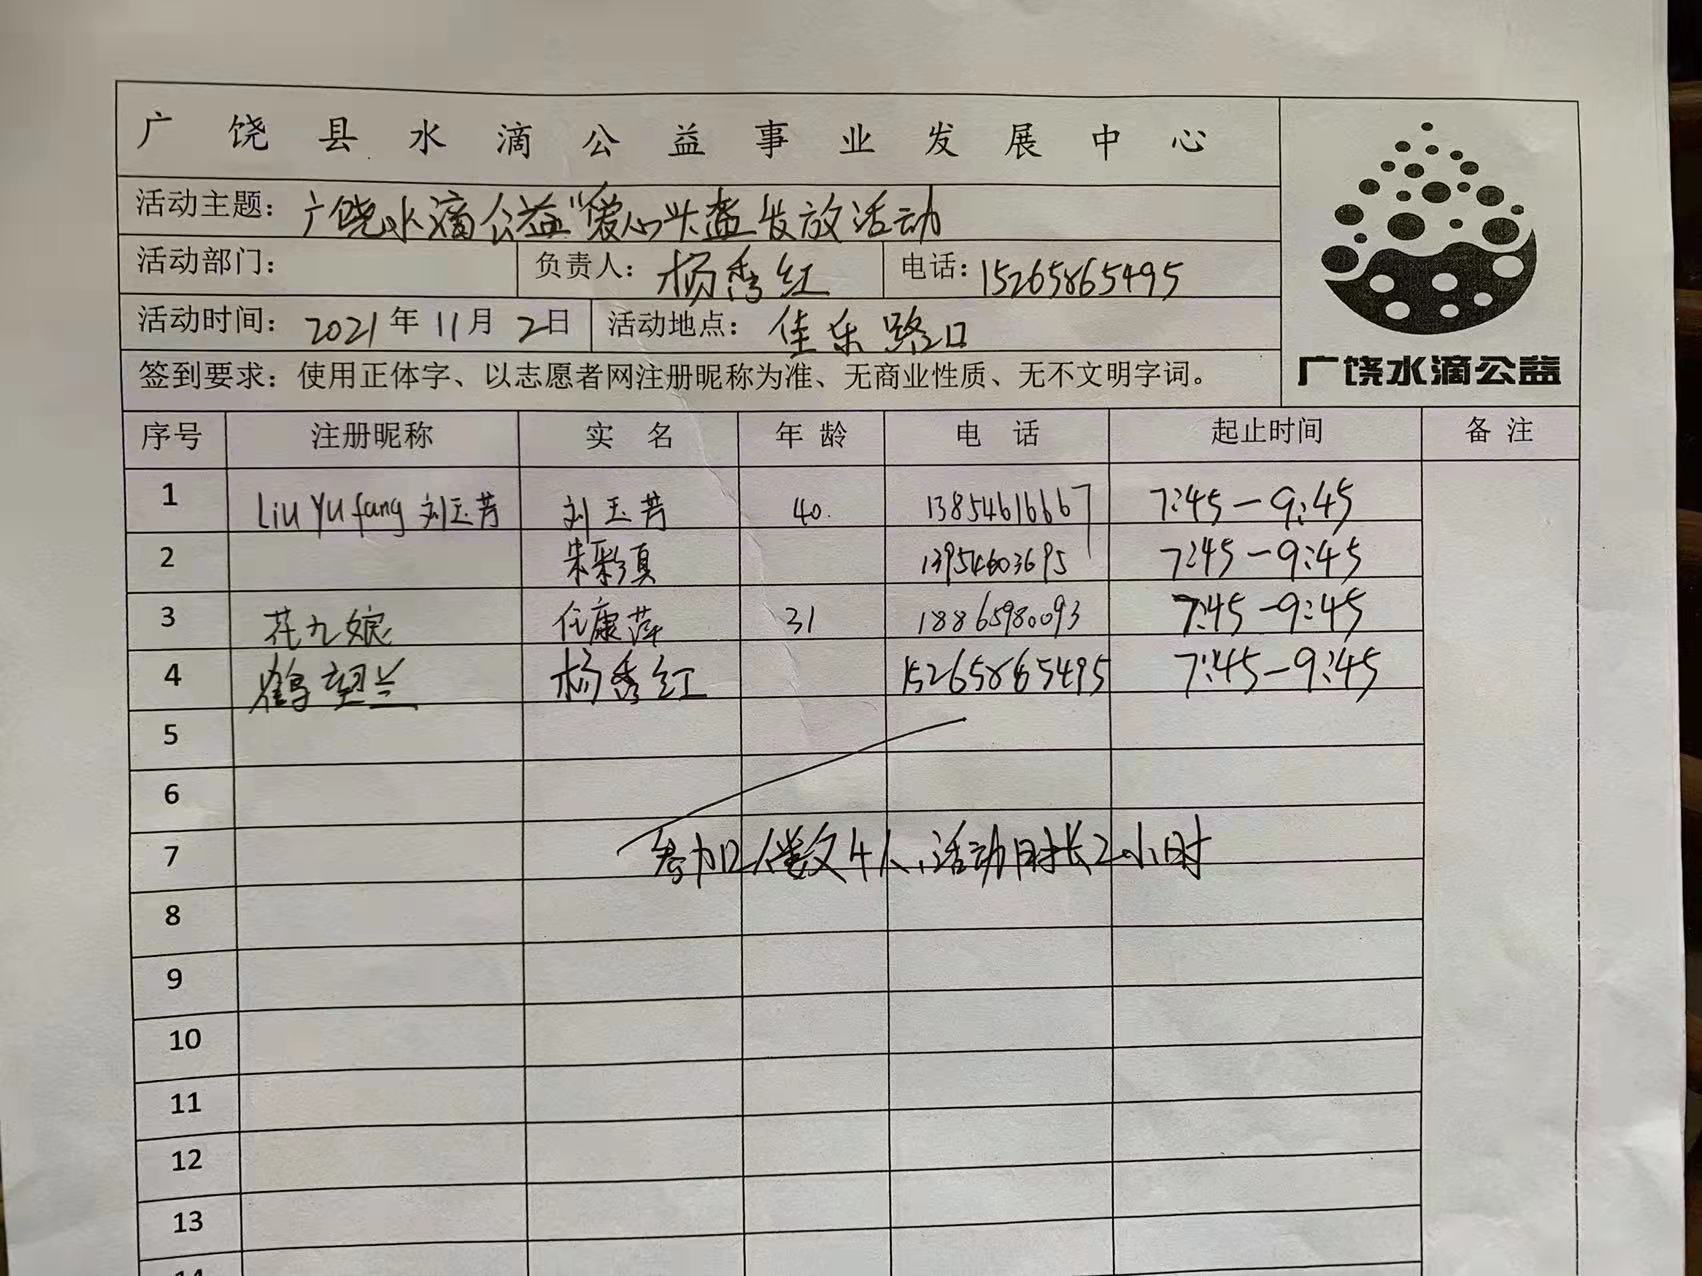 广饶县水滴公益事业发展中心
活动主题：广饶水滴公益“爱心头盔发放活动
活动部门： 负责人：杨秀红 电话：15265865495
活动时间：2021年11月2日 活动地点：佳乐路口
签到要求：使用正体字、以志愿者网注册昵称为准、无商业性质、无不文明字词。
广饶水滴公益
序号 注册昵称 实名 年龄 电话 起止时间 备注
1 Liu Yu fang 刘玉芳 刘玉芳 40. 13854616667 7:45—9:45
2 朱彩真 13954603695 7:45—9:45
3 花九娘 任康萍 31 18865980093 7:45—9:45
4 鹤望兰 杨秀红 15265865495 7:45—9:45
5
6
7 参加人数4人，活动时长2小时
8
9
10
11
12
13
14